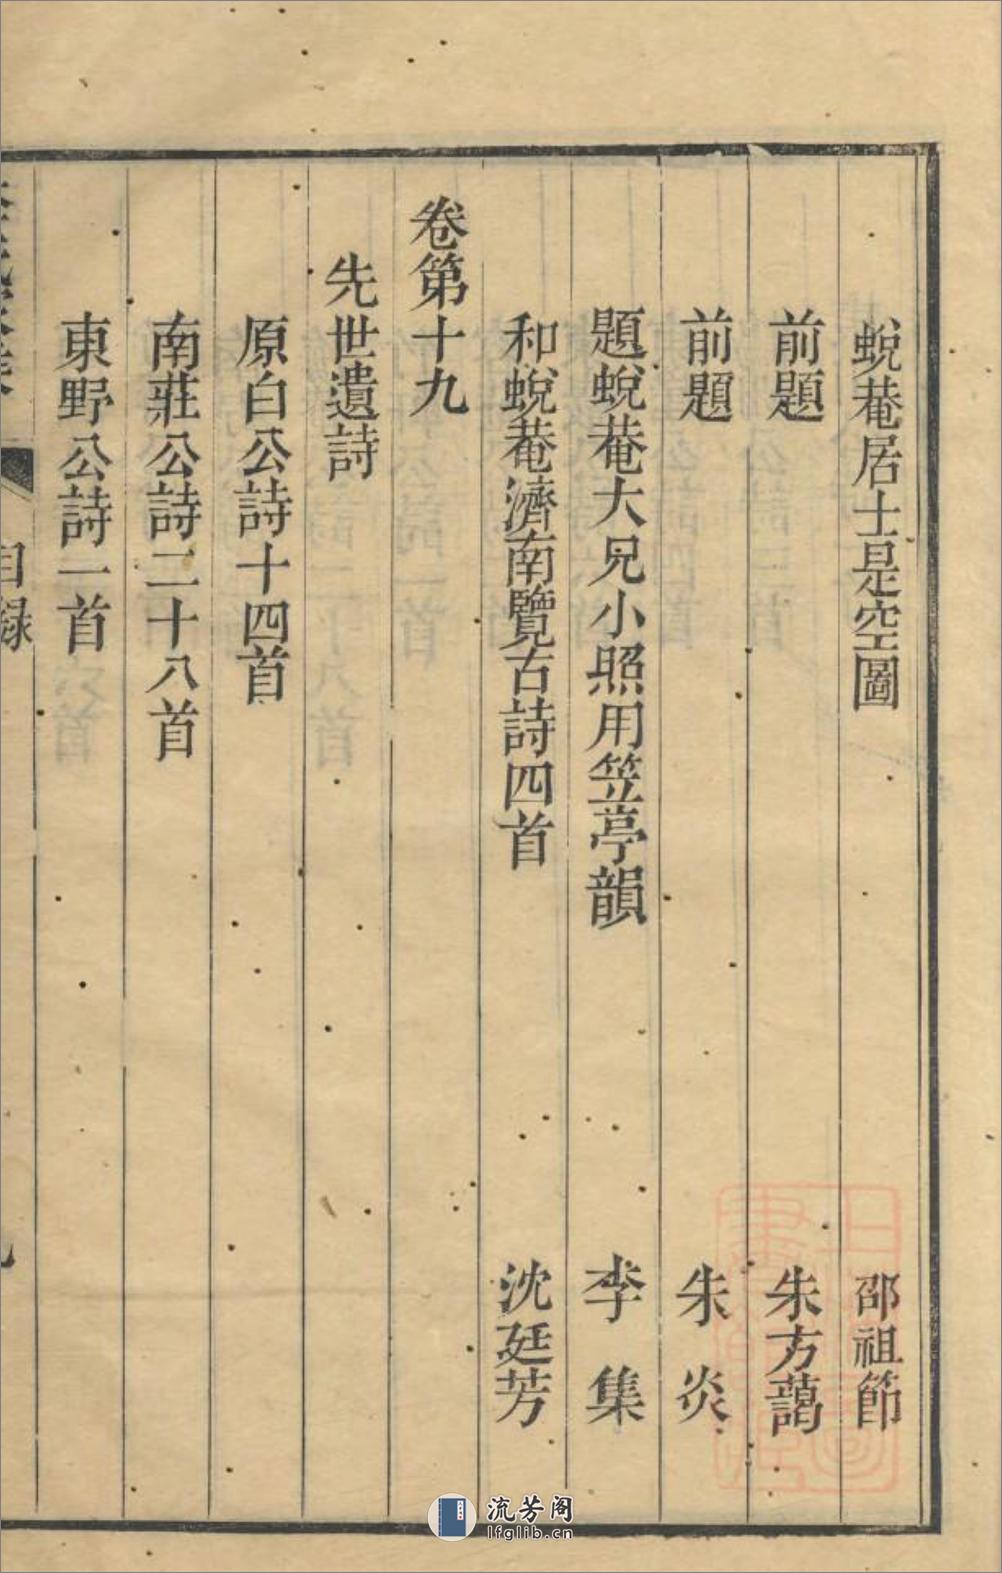 蛻菴居士是空圖 邵祖節
前題 朱方藹
前題 朱炎
題蛻菴大兄小照用笠亭韻 李集
和蛻菴濟南覽古詩四首 沈廷芳
卷第十九
先世遺詩
原白公詩十四首
南莊公詩二十八首
東野公詩一首
目錄
流芳阁
lfglib.cn